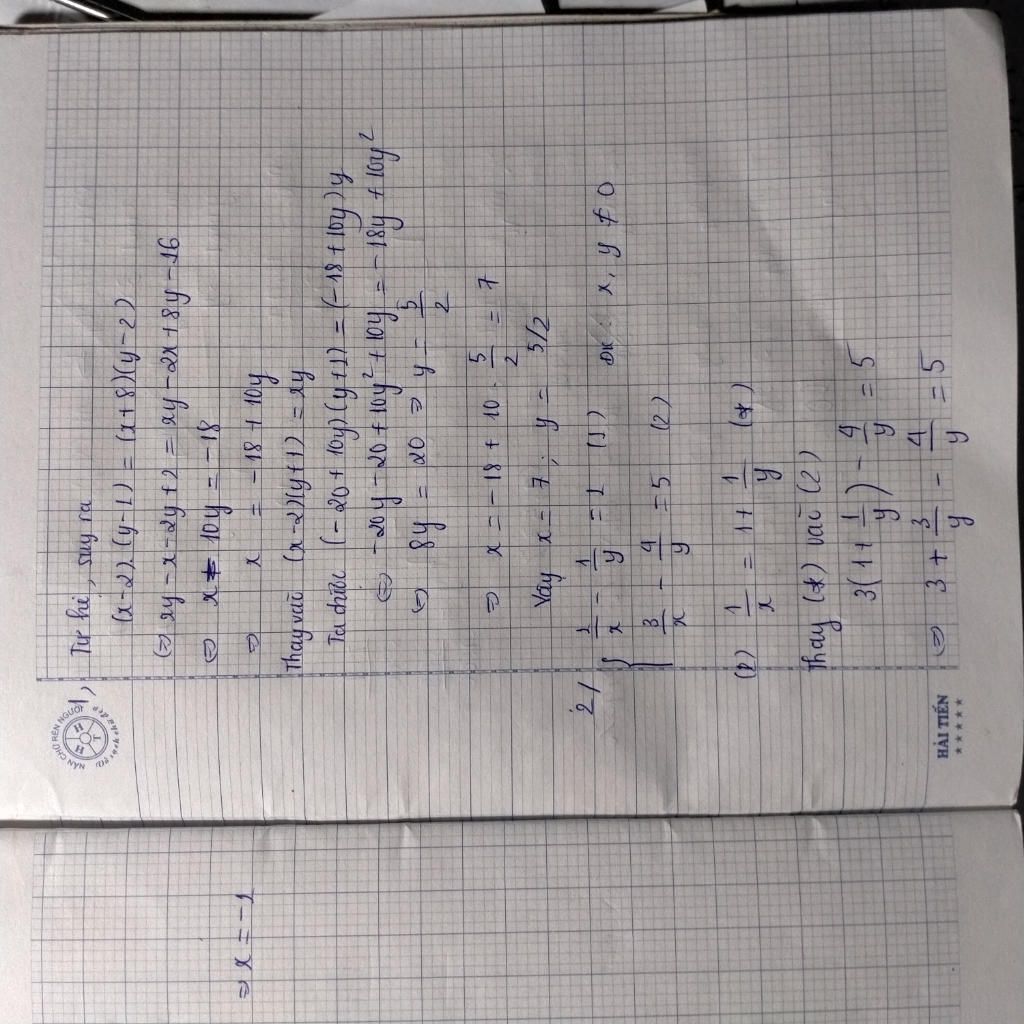 NÂN CHỮ RÈN NGƯỜI
H H T
1, Từ hệ, suy ra
(x-2).(y-1) = (x+8)(y-2)
(=) xy-x-2y+2 = xy-2x+8y-16
(=) x - 10y = -18
=) x = -18+10y
Thay vào (x-2)(y+1) = xy
Ta được (-20+10y)(y+1) = (-18+10y)y
(=) -20y-20+10y²+10y = -18y+10y²
(=) 8y = 20 => y = 5/2
=) x = -18+10.5/2 = 7
Vậy x=7; y = 5/2
2/ { 1/x - 1/y = 1 (1) ĐK: x, y ≠ 0
3/x - 4/y = 5 (2)
1/x = 1+1/y (*)
Thay (*) vào (2)
3(1+1/y) - 4/y = 5
(=) 3 + 3/y - 4/y = 5
HẢI TIẾN
=) x = -1